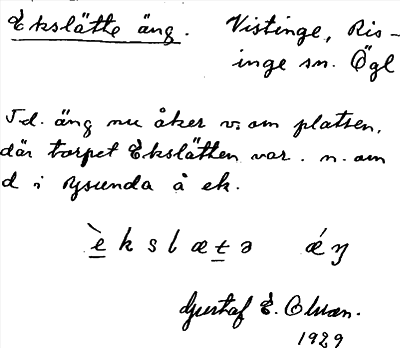 Ekslätte äng. Vistinge, Ris-
inge sn. Ögl
Id. äng nu åker v. om platsen,
där torpet Ekslätten var. n. om
d i Rysunda å ek.
è k s l æ t ə ǽ ŋ
Gustaf E. Olsson.
1929